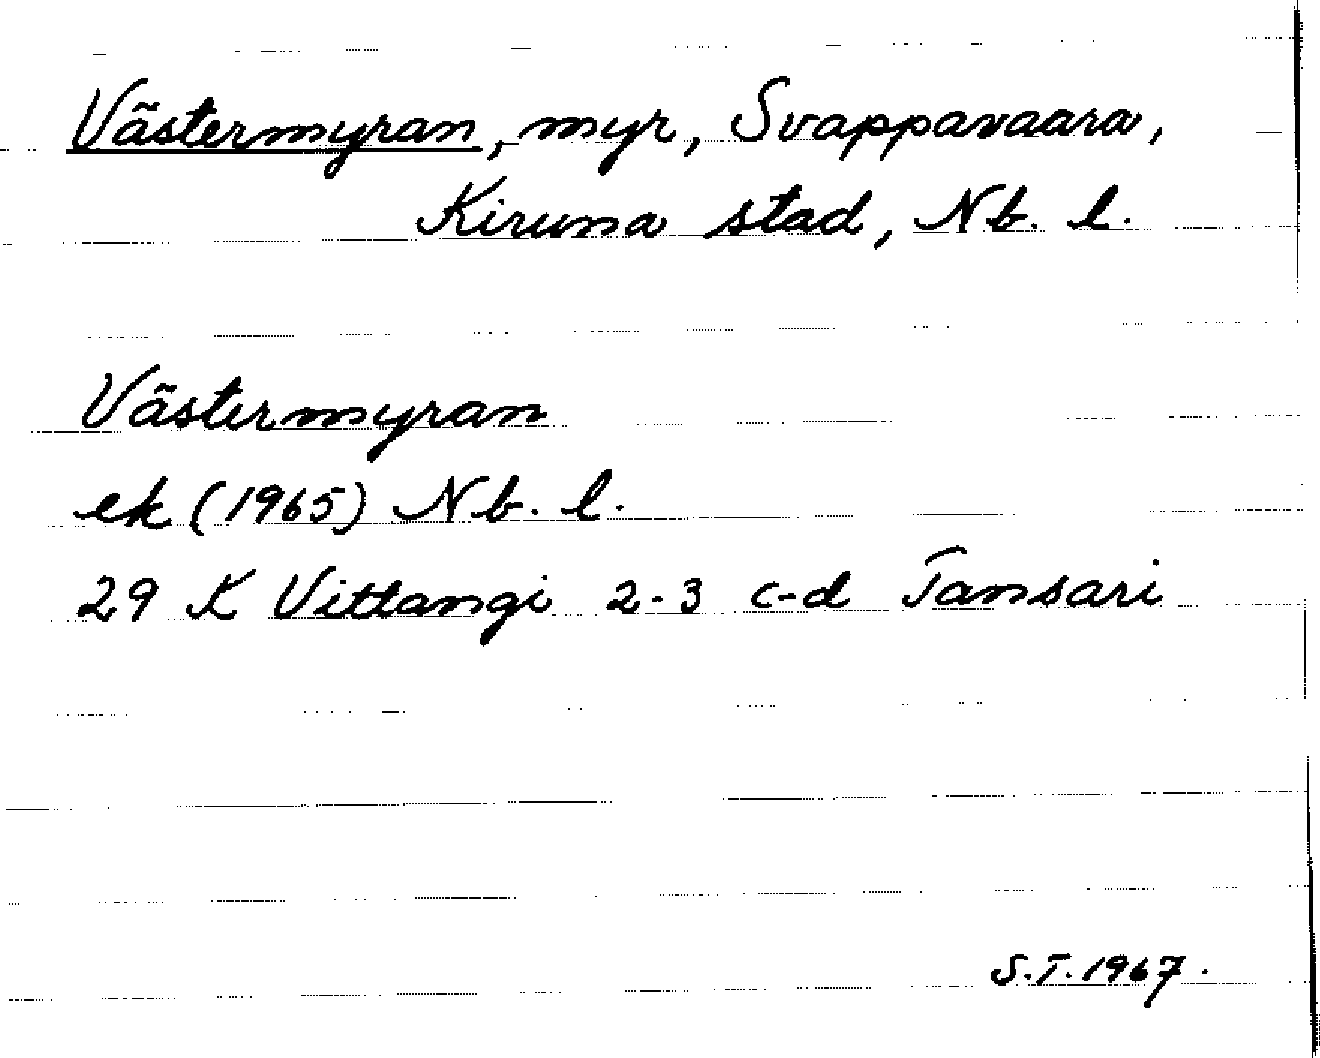 Västermyran, myr, Svappavaara,
Kiruna stad, Nb. l.
Västermyran
ek (1965) Nb. l.
29 K Vittangi 2-3 c-d Tansari
S.T. 1967.